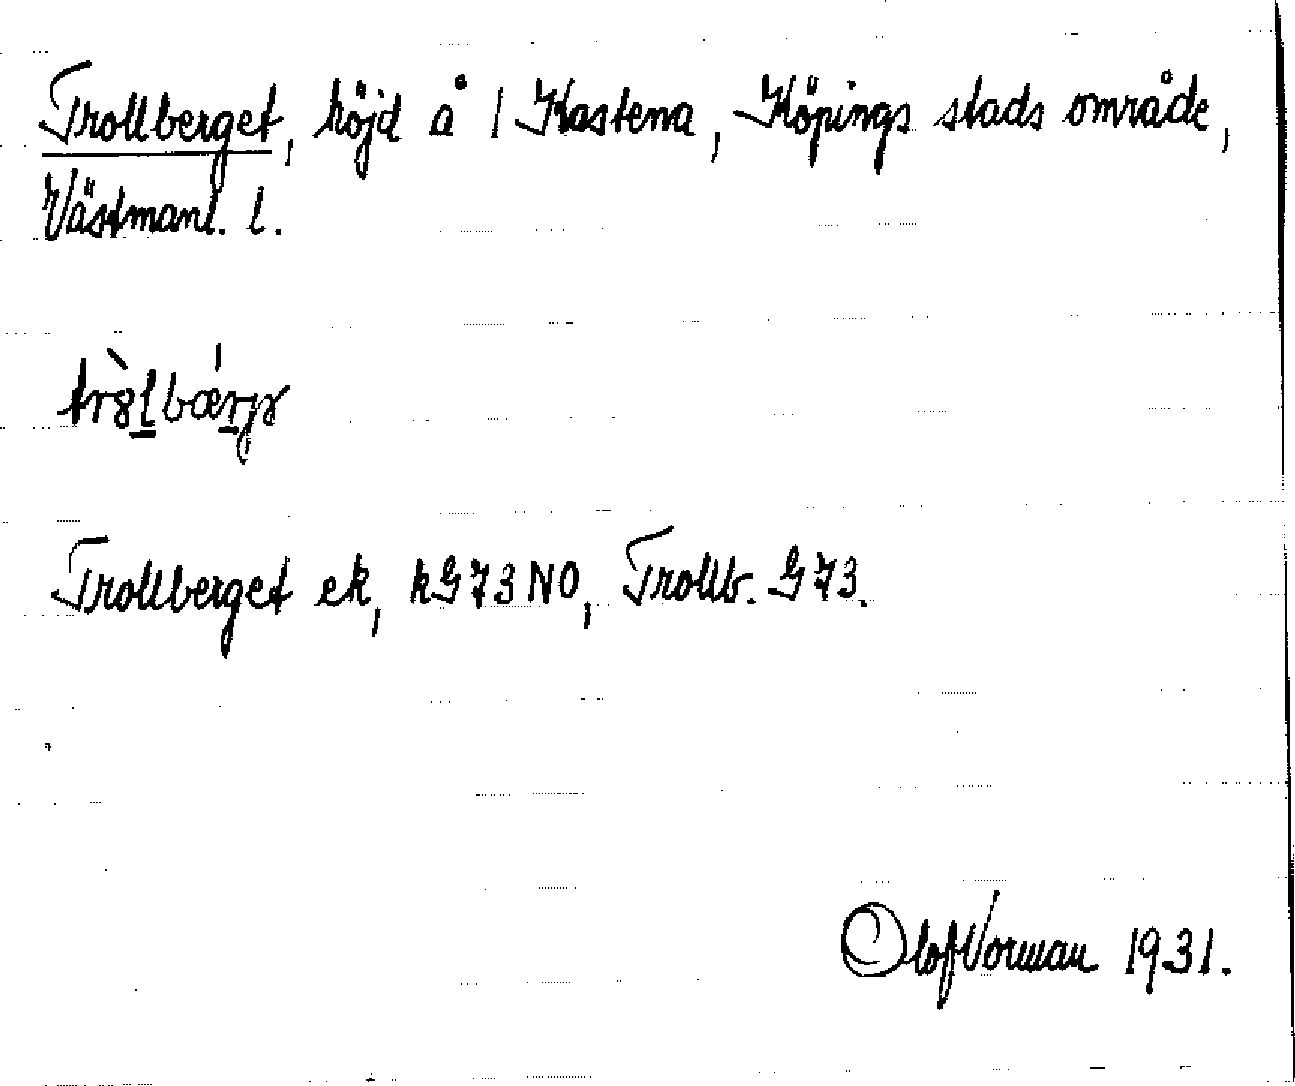 Trollberget, höjd å 1 Kastena, Köpings stads område,
Västmanl. l.
Trollberget ek, kG73NO, Trollb. G73.
Olof Vorman 1931.